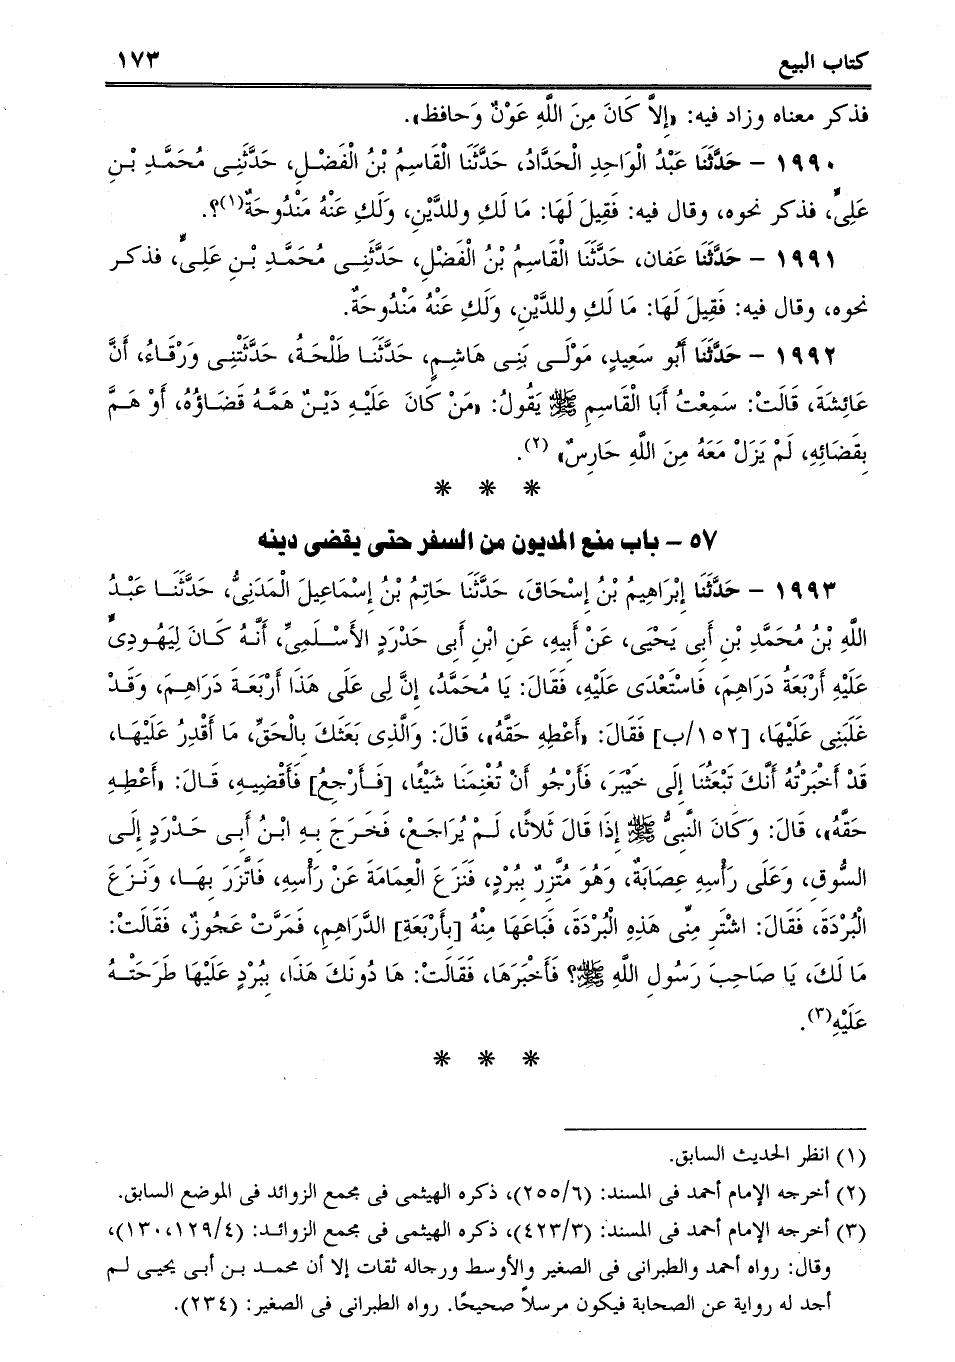 كتاب البيع ١٧٣
فذكر معناه وزاد فيه: «إلاَّ كَانَ مِنَ اللَّهِ عَوْنٌ وَحافظ».
١٩٩٠ - حَدَّثَنَا عَبْدُ الْوَاحِدِ الْحَدَّادُ، حَدَّثَنَا الْقَاسِمُ بْنُ الْفَضْلِ، حَدَّثَنِى مُحَمَّدِ بْنِ
عَلِىٍّ، فذكر نحوه، وقال فيه: فَقِيلَ لَهَا: مَا لَكِ وللدَّيْنِ، وَلَكِ عَنْهُ مَنْدُوحَةٌ(١)؟.
١٩٩١ - حَدَّثَنَا عَفان، حَدَّثَنَا الْقَاسِمُ بْنُ الْفَضْلِ، حَدَّثَنِى مُحَمَّدِ بْنِ عَلِىٍّ، فذكر
نحوه، وقال فيه: فَقِيلَ لَهَا: مَا لَكِ وللدَّيْنِ، وَلَكِ عَنْهُ مَنْدُوحَةٌ.
١٩٩٢ - حَدَّثَنَا أَبُو سَعِيدٍ، مَوْلَى بَنِى هَاشِمٍ، حَدَّثَنَا طَلْحَةُ، حَدَّثَتْنِى وَرْقَاءُ، أَنَّ
عَائِشَةَ، قَالَتْ: سَمِعْتُ أَبَا الْقَاسِمِ ﷺ يَقُولُ: «مَنْ كَانَ عَلَيْهِ دَيْنٌ هَمَّهُ قَضَاؤُهُ، أَوْ هَمَّ
بِقَضَائِهِ، لَمْ يَزَلْ مَعَهُ مِنَ اللَّهِ حَارِسٌ» (٢).
* * *
٥٧ - باب منع المديون من السفر حتى يقضى دينه
١٩٩٣ - حَدَّثَنَا إِبْرَاهِيمُ بْنُ إِسْحَاقَ، حَدَّثَنَا حَاتِمُ بْنُ إِسْمَاعِيلَ الْمَدَنِىُّ، حَدَّثَنَا عَبْدُ
اللَّهِ بْنُ مُحَمَّدِ بْنِ أَبِى يَحْيَى، عَنْ أَبِيهِ، عَنِ ابْنِ أَبِى حَدْرَدٍ الأَسْلَمِىِّ، أَنَّهُ كَانَ لِيَهُودِىٍّ
عَلَيْهِ أَرْبَعَةُ دَرَاهِمَ، فَاسْتَعْدَى عَلَيْهِ، فَقَالَ: يَا مُحَمَّدُ، إِنَّ لِى عَلَى هَذَا أَرْبَعَةَ دَرَاهِمَ، وَقَدْ
غَلَبَنِى عَلَيْهَا، [١٥٢/ب] فَقَالَ: «أَعْطِهِ حَقَّهُ»، قَالَ: وَالَّذِى بَعَثَكَ بِالْحَقِّ، مَا أَقْدِرُ عَلَيْهَا،
قَدْ أَخْبَرْتُهُ أَنَّكَ تَبْعَثُنَا إِلَى خَيْبَرَ، فَأَرْجُو أَنْ تُغْنِمَنَا شَيْئًا، [فَأَرْجِعُ] فَأَقْضِيهِ، قَالَ: «أَعْطِهِ
حَقَّهُ»، قَالَ: وَكَانَ النَّبِىُّ ﷺ إِذَا قَالَ ثَلاَثًا، لَمْ يُرَاجَعْ، فَخَرَجَ بِهِ ابْنُ أَبِى حَدْرَدٍ إِلَى
السُّوقِ، وَعَلَى رَأْسِهِ عِصَابَةٌ، وَهُوَ مُتَّزِرٌ بِبُرْدٍ، فَنَزَعَ الْعِمَامَةَ عَنْ رَأْسِهِ، فَاتَّزَرَ بِهَا، وَنَزَعَ
الْبُرْدَةَ، فَقَالَ: اشْتَرِ مِنِّى هَذِهِ الْبُرْدَةَ، فَبَاعَهَا مِنْهُ [بِأَرْبَعَةِ] الدَّرَاهِمِ، فَمَرَّتْ عَجُوزٌ، فَقَالَتْ:
مَا لَكَ، يَا صَاحِبَ رَسُولِ اللَّهِ ﷺ؟ فَأَخْبَرَهَا، فَقَالَتْ: هَا دُونَكَ هَذَا، بِبُرْدٍ عَلَيْهَا طَرَحَتْهُ
عَلَيْهِ(٣).
* * *
(١) انظر الحديث السابق.
(٢) أخرجه الإمام أحمد فى المسند: (٢٥٥/٦)، ذكره الهيثمى فى مجمع الزوائد فى الموضع السابق.
(٣) أخرجه الإمام أحمد فى المسند: (٤٢٣/٣)، ذكره الهيثمى فى مجمع الزوائد: (١٣٠،١٢٩/٤)،
وقال: رواه أحمد والطبرانى فى الصغير والأوسط ورجاله ثقات إلا أن محمد بن أبى يحيى لم
أجد له رواية عن الصحابة فيكون مرسلاً صحيحًا. رواه الطبرانى فى الصغير: (٢٣٤).